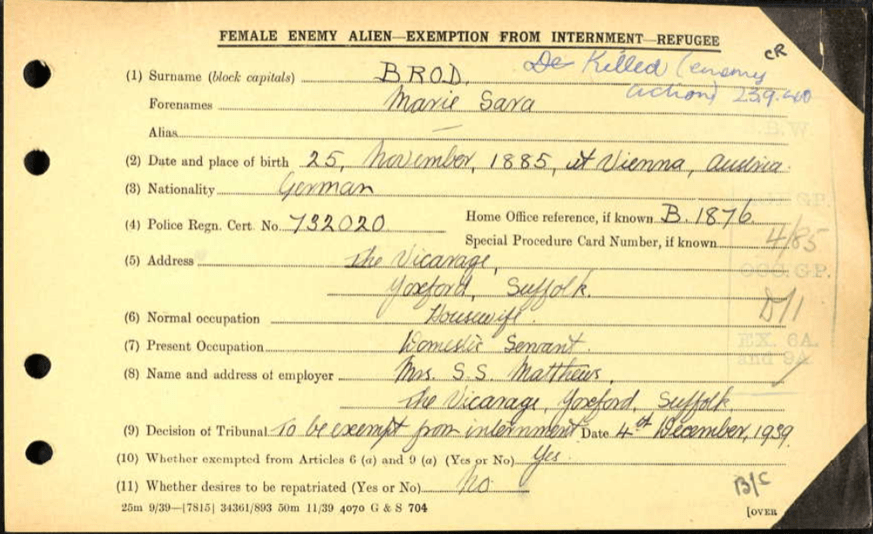 FEMALE ENEMY ALIEN—EXEMPTION FROM INTERNMENT—REFUGEE
CR
(1) Surname (block capitals) BROD.
De Killed (enemy
action) 25.9.40
Forenames Marie Sara
Alias —
(2) Date and place of birth 25, November, 1885, at Vienna, Austria.
(3) Nationality German
(4) Police Regn. Cert. No. 732020
Home Office reference, if known B. 1876.
Special Procedure Card Number, if known
4/85
(5) Address The Vicarage,
Yoxford, Suffolk.
D/1
(6) Normal occupation Housewife.
(7) Present Occupation Domestic Servant.
EX. 6A.
and 9A
(8) Name and address of employer Mrs. S.S. Matthews,
The Vicarage, Yoxford, Suffolk.
(9) Decision of Tribunal To be exempt from internment Date 4th December, 1939.
(10) Whether exempted from Articles 6 (a) and 9 (a) (Yes or No) Yes.
(11) Whether desires to be repatriated (Yes or No) No
B/C
25m 9/39—[7815] 34361/893 50m 11/39 4070 G & S 704
[OVER